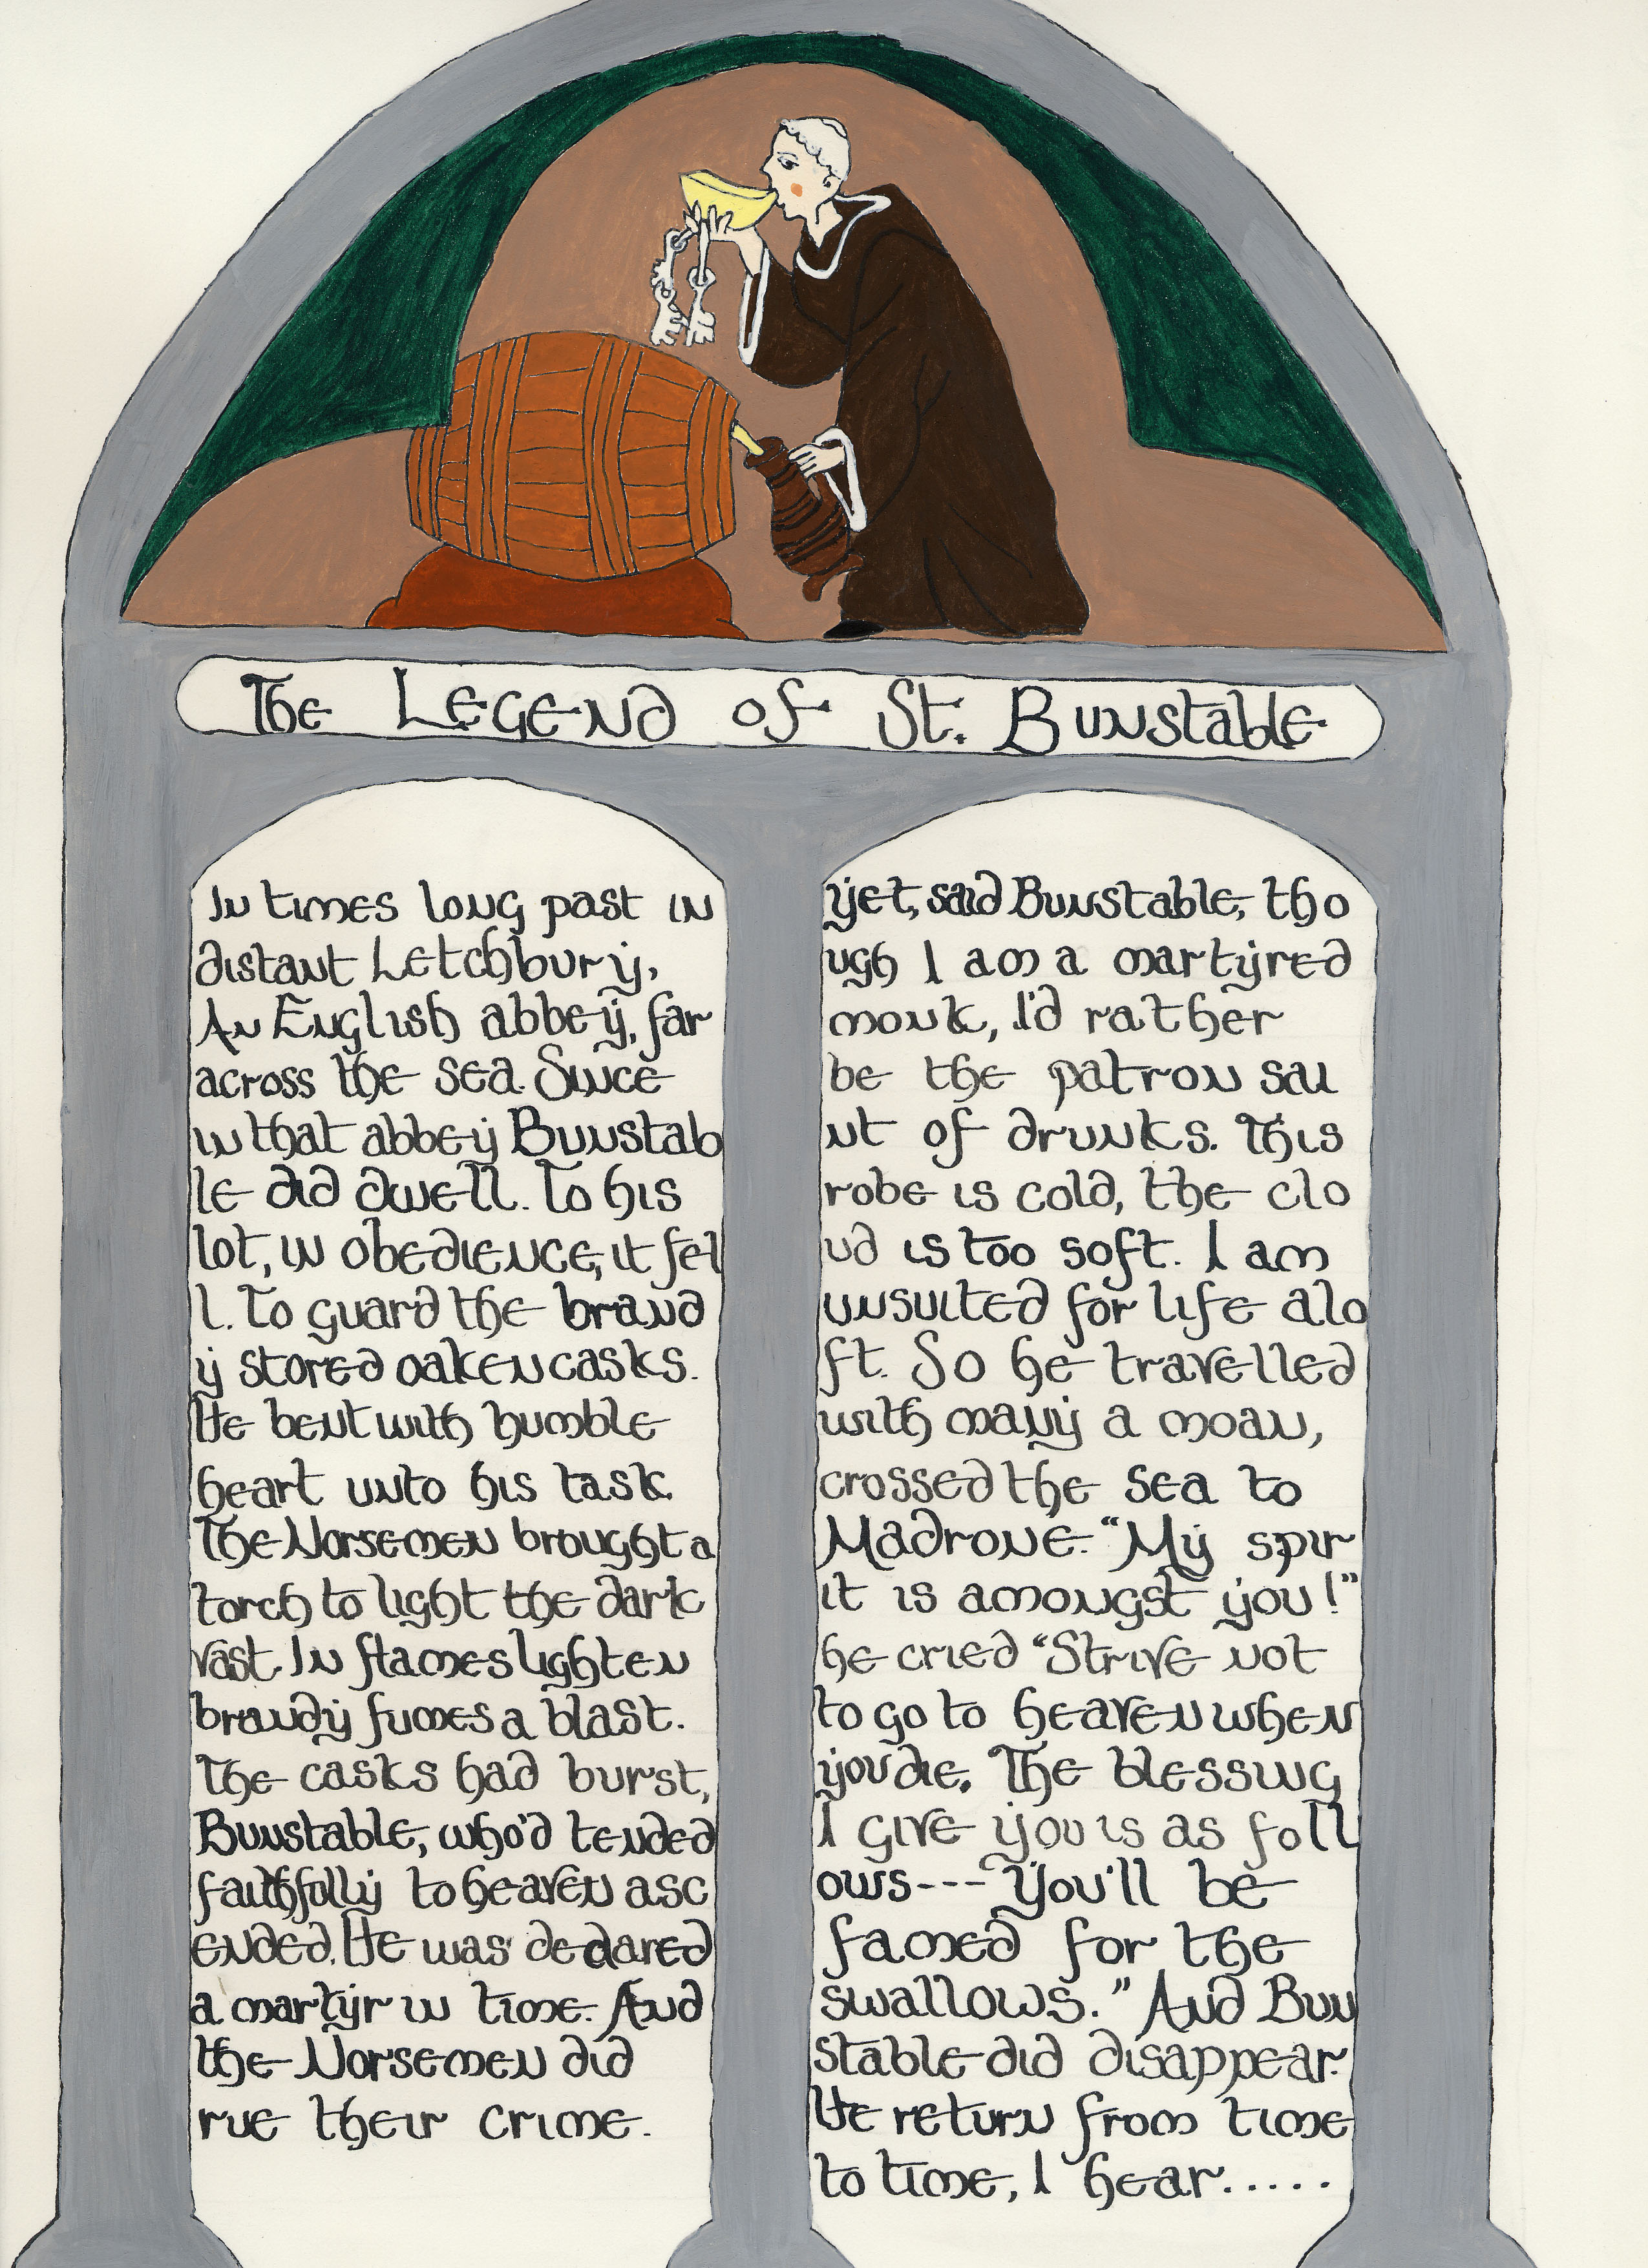 The Legend of St. Bunstable
In times long past in
distant Letchbury,
An English abbey, far
across the sea. Since
in that abbey Bunstab
le did dwell. To his
lot, in obedience, it fel
l. To guard the brand
y stored oaken casks.
He bent with humble
heart unto his task.
The Norsemen brought a
torch to light the dark
vast. In flames lighten
brandy fumes a blast.
The casks had burst,
Bunstable, who'd tended
faithfully to heaven asc
ended. He was declared
a martyr in time. And
the Norsemen did
rue their crime.
yet, said Bunstable, tho
ugh I am a martyred
monk, I'd rather
be the patron sai
nt of drunks. This
robe is cold, the clo
ud is too soft. I am
unsuited for life alo
ft. So he travelled
with many a moan,
crossed the sea to
Madrone. "My spir
it is amongst you!"
he cried "Strive not
to go to heaven when
you die. The blessing
I give you is as foll
ows--- You'll be
famed for the
swallows." And Bun
stable did disappear.
He return from time
to time, I hear.....